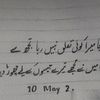 میرا کوئی تعلق نہیں رہا تجھ سے
میں نے تجھے تیرے جیسوں کے لیے چھوڑ دیا
10 May 2.